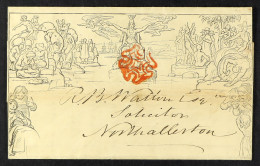 R. W. Walton Esq
Solicitor
Northallerton